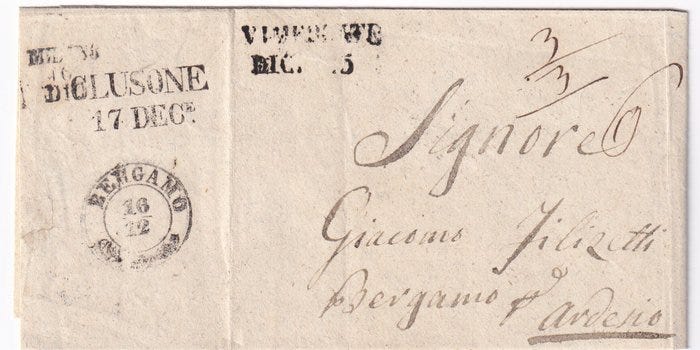 MILANO
DIC
CLUSONE
17 DEC.E
BERGAMO
16
12
VIMERCATE
DIC. 15
3
3
6
Signore
Giacomo Filisetti
Bergamo p
Ardesio